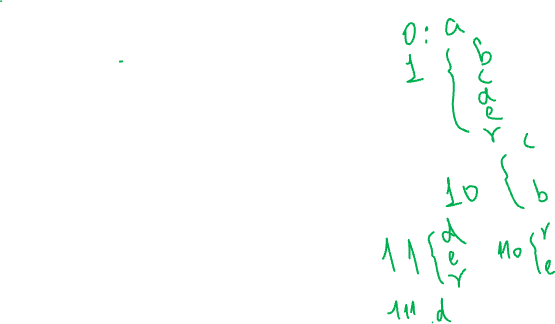 0: a
1 { b
c
d
e
r
10 { c
b
11 { d
e
r
110 { r
e
111 d